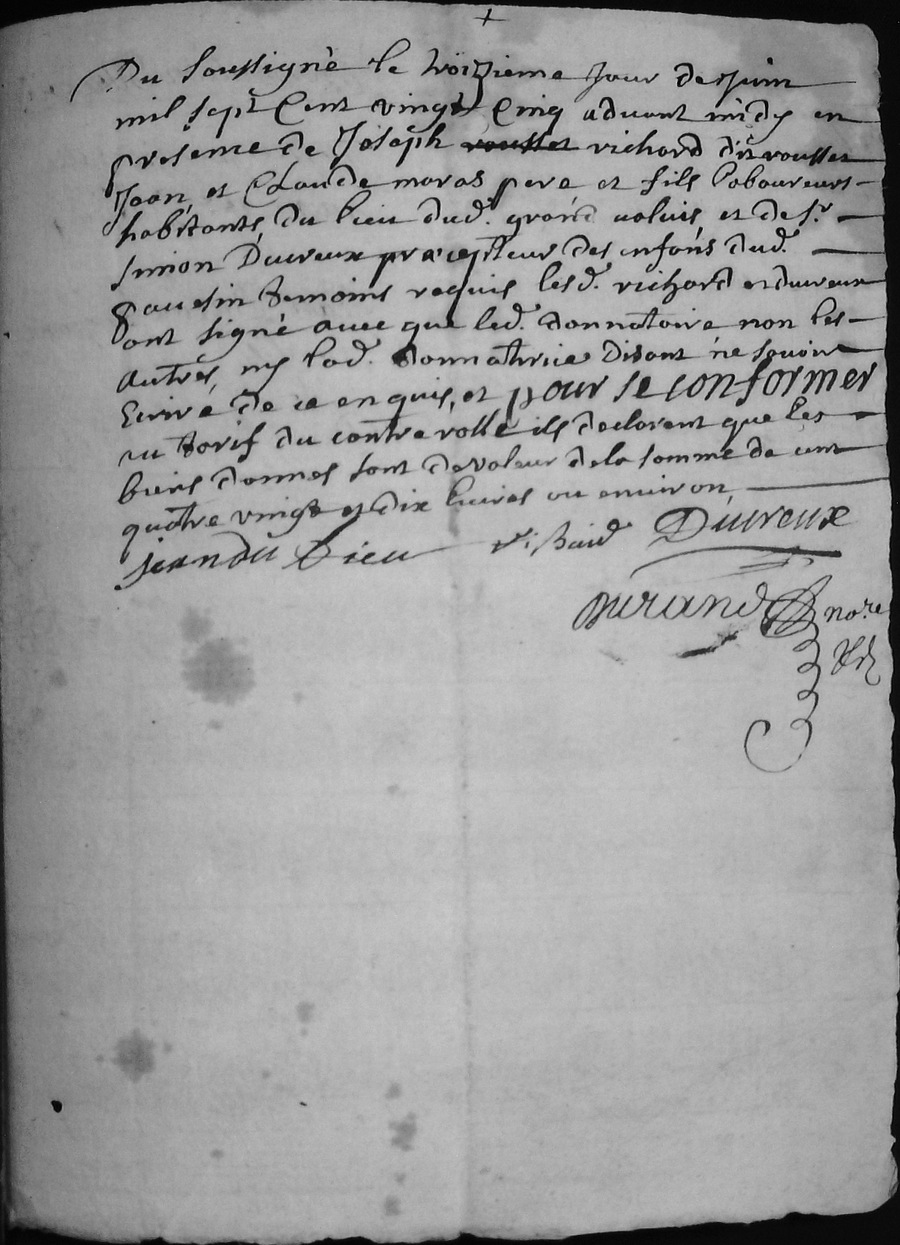 Du soussigné le troizieme jour de juin
mil sept cent vingt cinq advant midy en
presence de Joseph rousset richard dit rousset
Jean, et Claude maras pere et fils laboureurs
habitants, du lieu dud. grand valuis et de sr.
simion Ducreux præcepteur des enfans dud.
temoins requis lesd. richard et ducreux
ont signé avec que led. donnataire non les
autres, ny lad. donnatrice disant ne savoir
Ecrire de ce enquis, et pour se conformer
au tarif du controlle ils declarent que les
biens donnes sont de valeur de la somme de cent
quatre vingt et dix livres ou environ
jean du Lieu Ducreux
Durand no.re